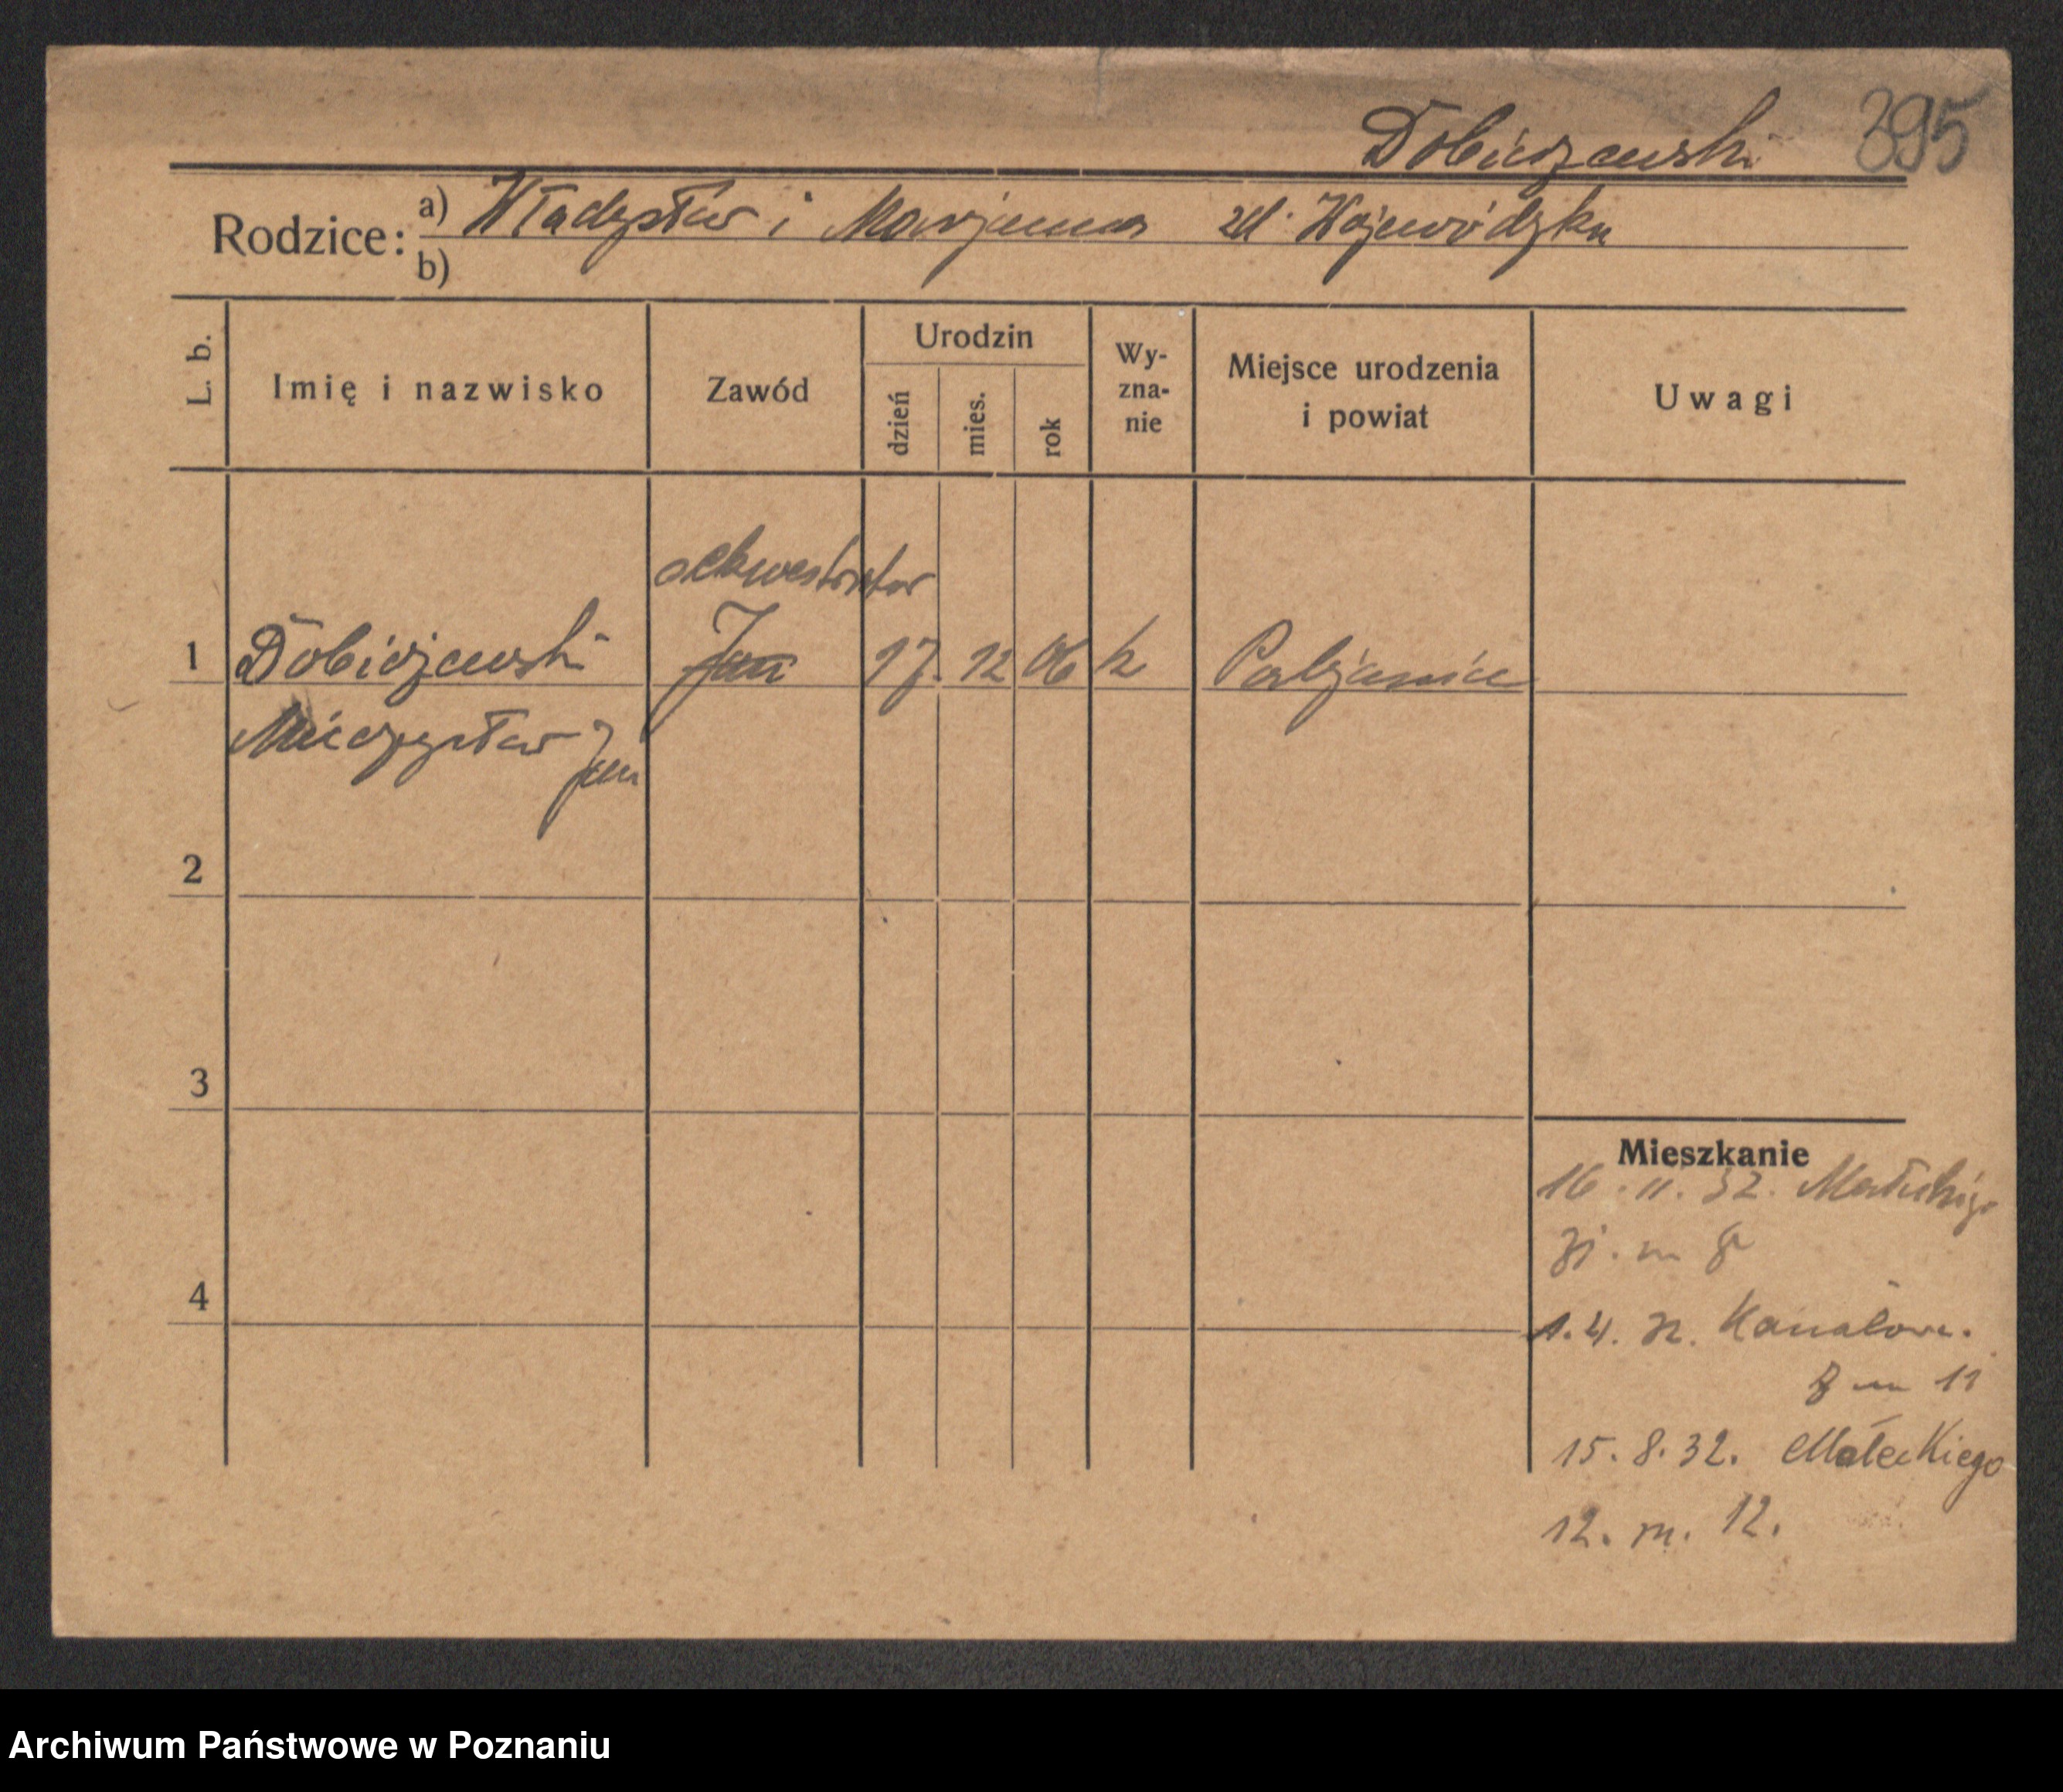 Dobieszewski 395
Rodzice: a) Władysław i Marjanna zd. Wojewódzka
b)
L. b.
Imię i nazwisko
Zawód
Urodzin
dzień
mies.
rok
Wy-
zna-
nie
Miejsce urodzenia
i powiat
Uwagi
sekwestrator
1 Dobieszewski Jan 17. 12 06 k Pabjanice
Mieczysław Jan
2
3
4
Mieszkanie
16. 11. 32. Małeckiego
m 8
1.4. 32. Kanałowa.
8 m 11
15. 8. 32. Małeckiego
12. m. 12.
Archiwum Państwowe w Poznaniu